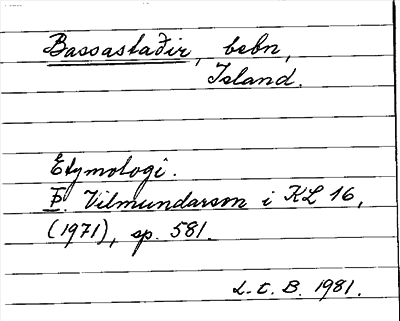 Bassastaðir, bebn,
Island.
Etymologi.
Þ. Vilmundarson i KL 16,
(1971), sp. 581.
L. t. B. 1981.